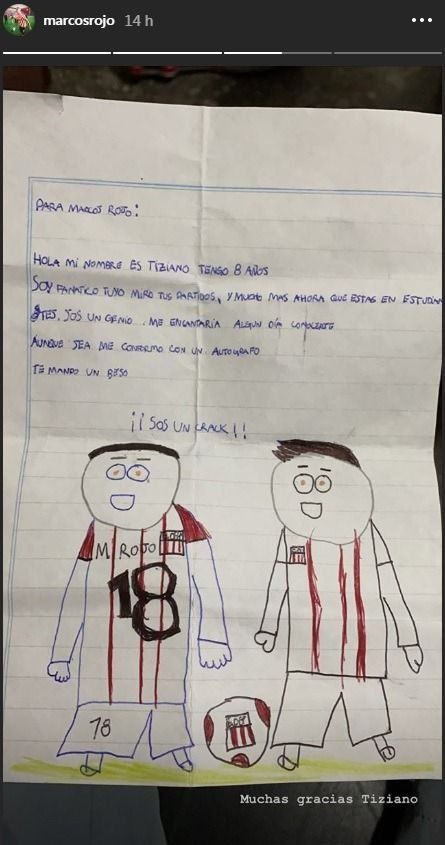 marcosrojo 14 h
PARA MARCOS ROJO:
HOLA MI NOMBRE ES TIZIANO TENGO 8 AÑOS
SOY FANATICO TUYO MIRO TUS PARTIDOS, Y MUCHO MAS AHORA QUE ESTAS EN ESTUDIAN
TES, SOS UN GENIO... ME ENCANTARÍA ALGUN DÍA CONOCERTE
AUNQUE SEA ME CONFORMO CON UN AUTOGRAFO
TE MANDO UN BESO
¡¡SOS UN CRACK!!
M. ROJO
18
18
Muchas gracias Tiziano